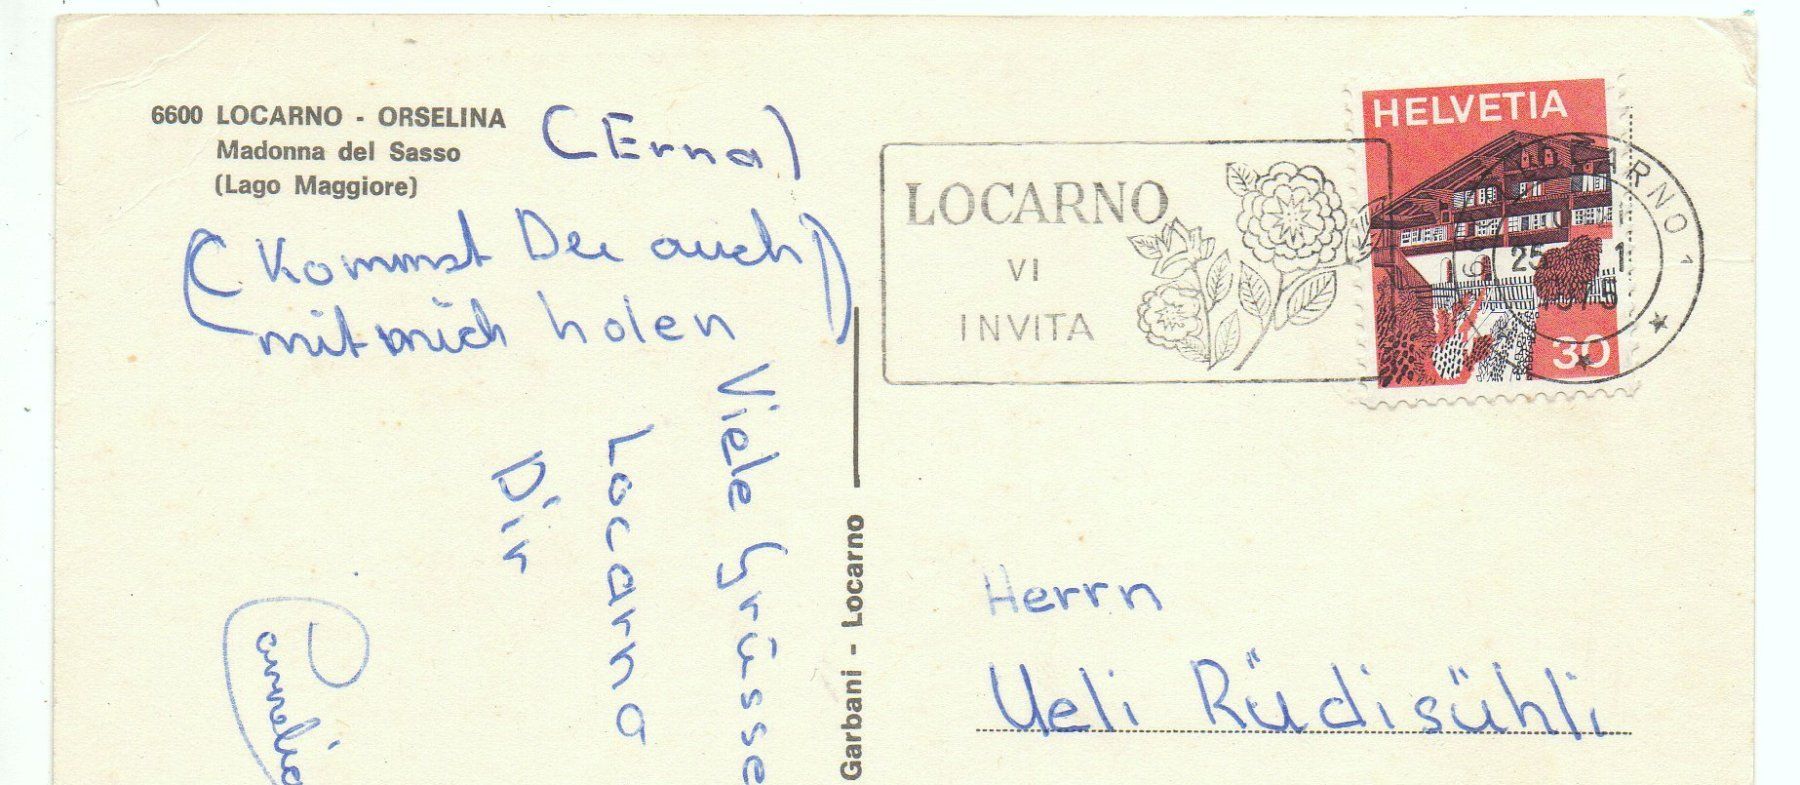 6600 LOCARNO - ORSELINA
Madonna del Sasso
(Lago Maggiore)
(Erna)
(Kommst Du auch)
mit mich holen
Viele Grüsse
Locarno
Dir
Cornelia
Garbani - Locarno
LOCARNO
VI
INVITA
HELVETIA
30
LOCARNO 1
25
Herrn
Ueli Rüdisühli